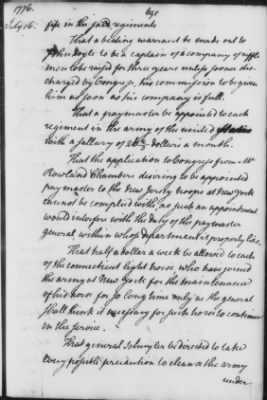 1776.
July 16.
fife in the said regiments
That a beating warrant be made out to
John Doyle to be a captain of a company of riffle
men to be raised for three years unless sooner dis-
charged by Congress, his commission to be given
him as soon as his company is full.
That a paymaster be appointed to each
regiment in the army of the united States
with a sallary of dollars a month.
That the application to Congress from Mr
Rowland Chambers desiring to be appointed
paymaster to the New Jersey troops at New York
cannot be complied with, as such an appointment
would interfere with the duty of the paymaster
general, within whose department it properly lies.
That half a dollar a week be allowed to each
of the connecticut light horse, who have joined
the army at New York for the maintenance
of his horse for so long time only as the general
shall think it necessary for such horse to continue
in the service.
That general Schuyler be directed to take
every possible precaution to cleanse the army
under